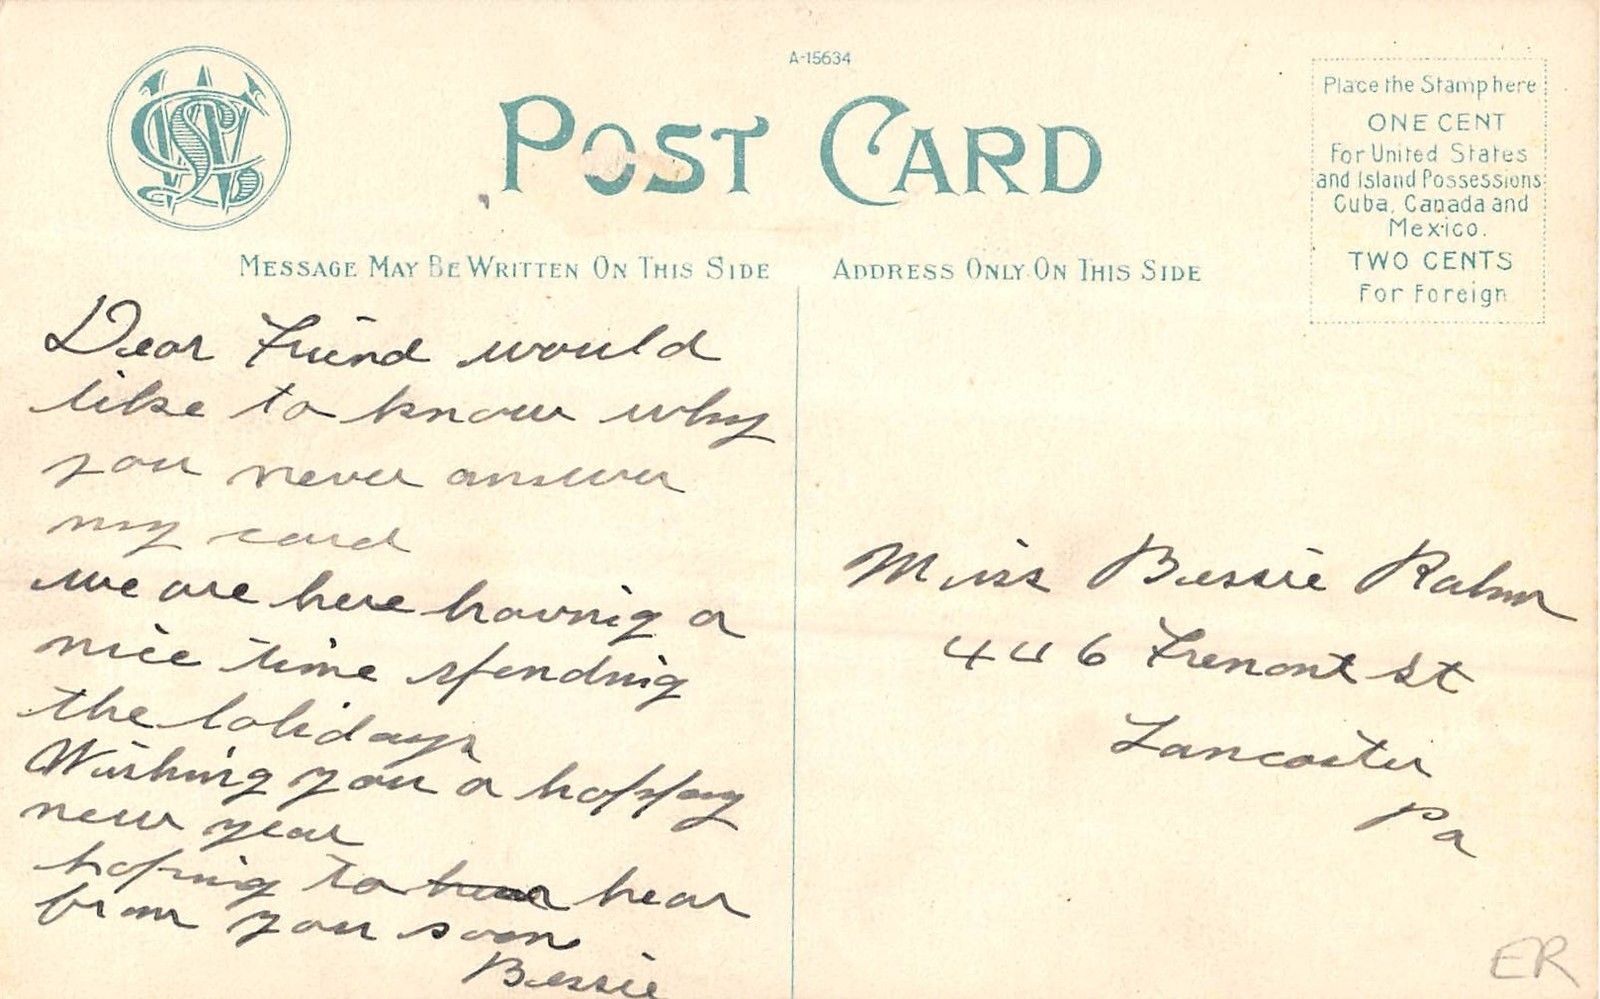 A-15634
POST CARD
Place the Stamp here
ONE CENT
For United States
and Island Possessions
Cuba, Canada and
Mexico.
TWO CENTS
For Foreign
MESSAGE MAY BE WRITTEN ON THIS SIDE
ADDRESS ONLY ON THIS SIDE
Dear Friend would
like to know why
you never answer
my card
we are here having a
nice time spending
the holidays
Wishing you a happy
new year
hoping to hear
from you soon
Bessie
Miss Bessie Rahm
446 Fremont St
Lancaster
Pa
ER